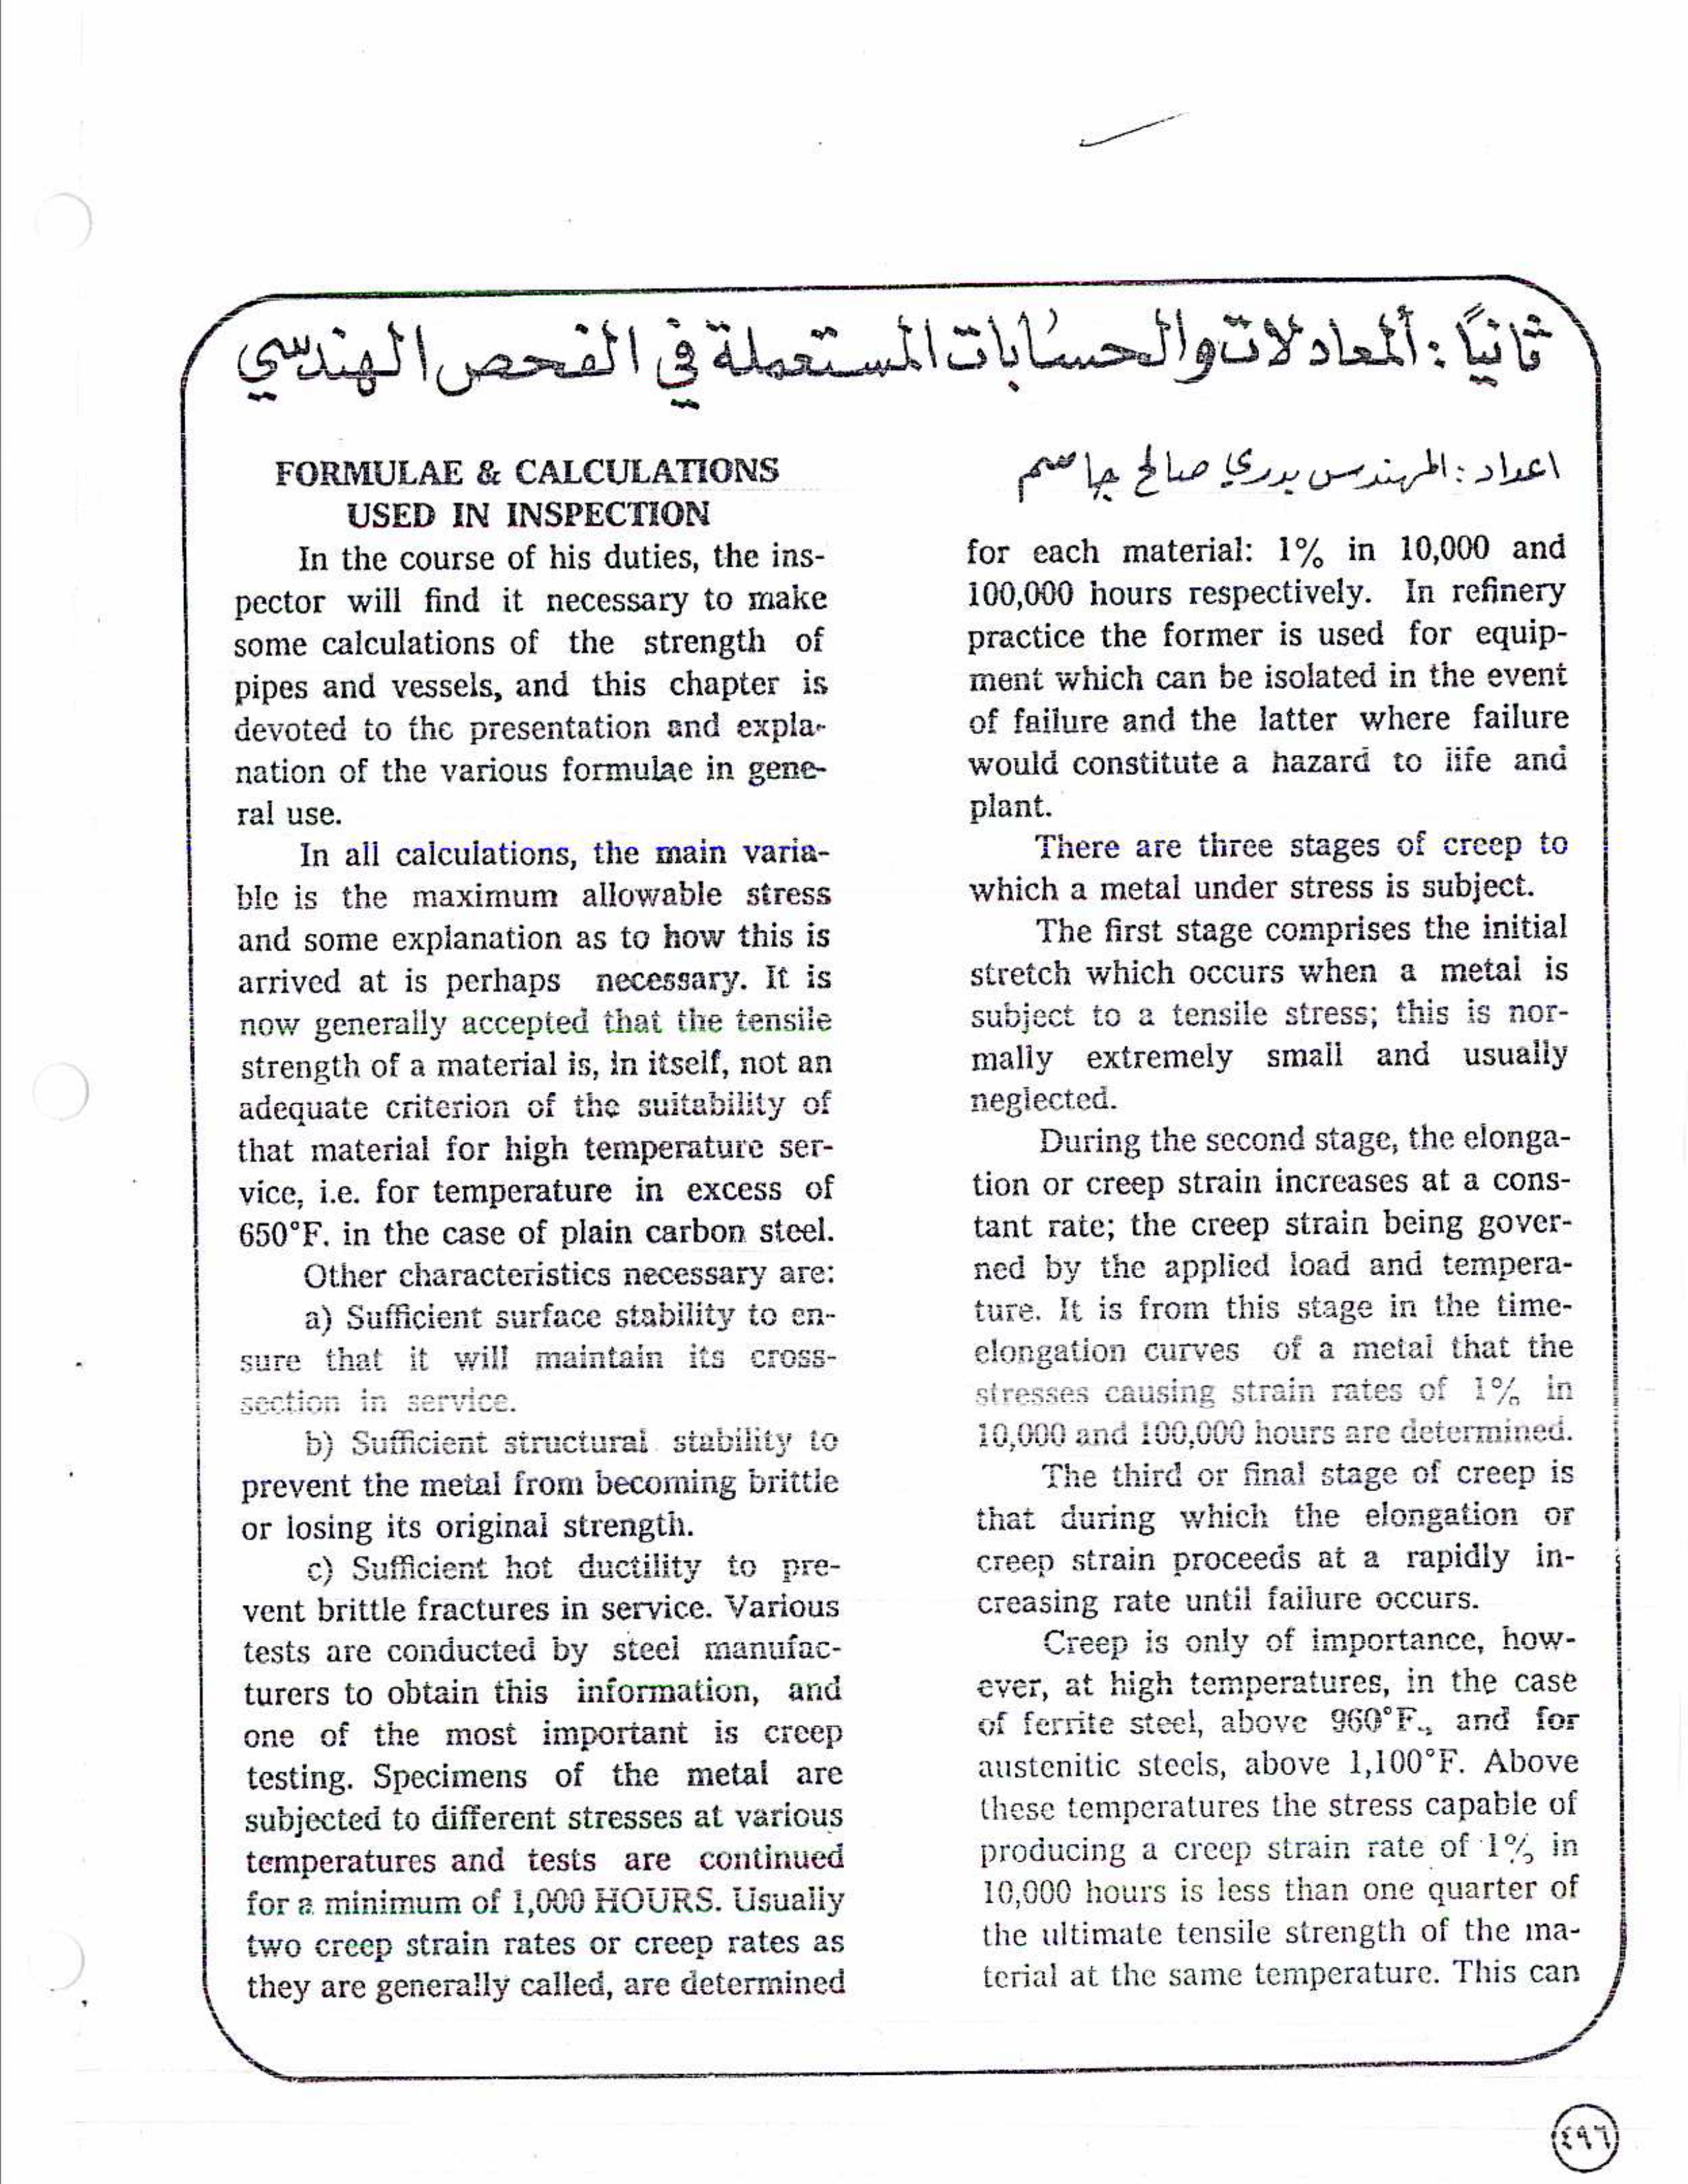 ثانيًا : ألمعادلات والحسابات المستعملة في الفحص الهندسي
FORMULAE & CALCULATIONS
USED IN INSPECTION
In the course of his duties, the ins-
pector will find it necessary to make
some calculations of the strength of
pipes and vessels, and this chapter is
devoted to the presentation and expla-
nation of the various formulae in gene-
ral use.
In all calculations, the main varia-
ble is the maximum allowable stress
and some explanation as to how this is
arrived at is perhaps necessary. It is
now generally accepted that the tensile
strength of a material is, in itself, not an
adequate criterion of the suitability of
that material for high temperature ser-
vice, i.e. for temperature in excess of
650°F. in the case of plain carbon steel.
Other characteristics necessary are:
a) Sufficient surface stability to en-
sure that it will maintain its cross-
section in service.
b) Sufficient structural stability to
prevent the metal from becoming brittle
or losing its original strength.
c) Sufficient hot ductility to pre-
vent brittle fractures in service. Various
tests are conducted by steel manufac-
turers to obtain this information, and
one of the most important is creep
testing. Specimens of the metal are
subjected to different stresses at various
temperatures and tests are continued
for a minimum of 1,000 HOURS. Usually
two creep strain rates or creep rates as
they are generally called, are determined
اعداد : المهندس بدري صالح جاسم
for each material: 1% in 10,000 and
100,000 hours respectively. In refinery
practice the former is used for equip-
ment which can be isolated in the event
of failure and the latter where failure
would constitute a hazard to life and
plant.
There are three stages of creep to
which a metal under stress is subject.
The first stage comprises the initial
stretch which occurs when a metal is
subject to a tensile stress; this is nor-
mally extremely small and usually
neglected.
During the second stage, the elonga-
tion or creep strain increases at a cons-
tant rate; the creep strain being gover-
ned by the applied load and tempera-
ture. It is from this stage in the time-
elongation curves of a metal that the
stresses causing strain rates of 1% in
10,000 and 100,000 hours are determined.
The third or final stage of creep is
that during which the elongation or
creep strain proceeds at a rapidly in-
creasing rate until failure occurs.
Creep is only of importance, how-
ever, at high temperatures, in the case
of ferrite steel, above 960°F., and for
austenitic steels, above 1,100°F. Above
these temperatures the stress capable of
producing a creep strain rate of 1% in
10,000 hours is less than one quarter of
the ultimate tensile strength of the ma-
terial at the same temperature. This can
٤٩٦